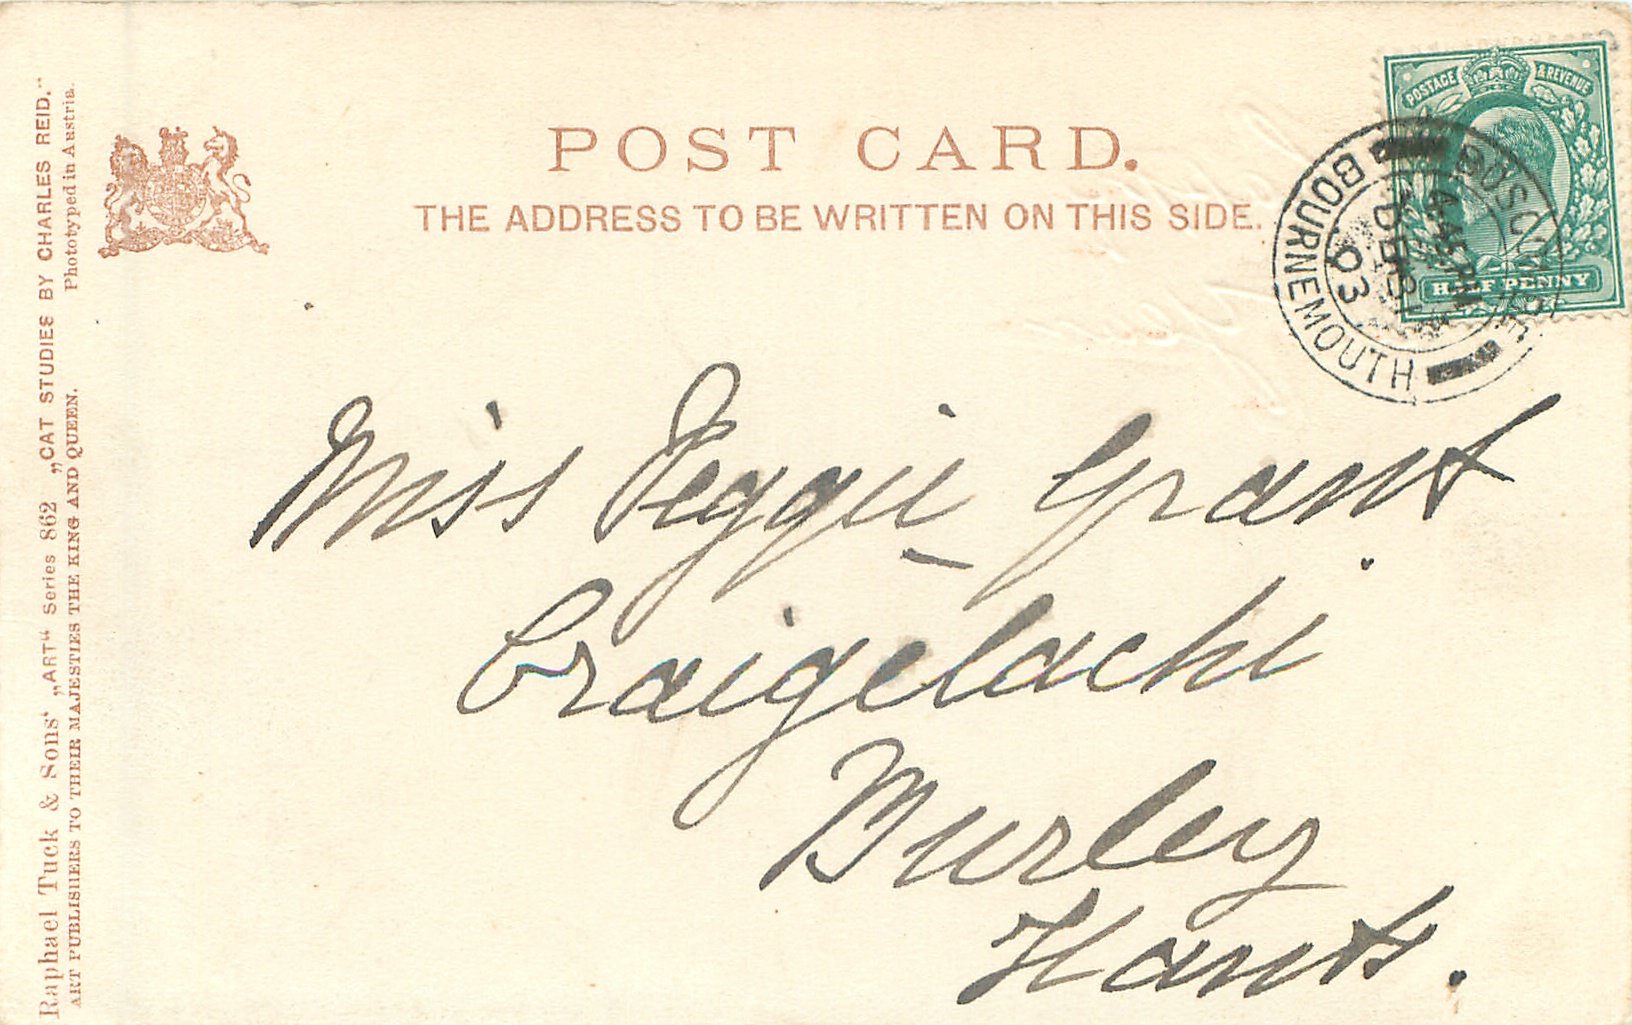 POST CARD.
THE ADDRESS TO BE WRITTEN ON THIS SIDE.
Raphael Tuck & Sons' „ART“ Series 862 „CAT STUDIES BY CHARLES REID.“
Phototyped in Austria.
ART PUBLISHERS TO THEIR MAJESTIES THE KING AND QUEEN.
POSTAGE & REVENUE
HALF PENNY
BOURNEMOUTH
03
Miss Peggie Grant
Craigelachi
Burley
Hants.